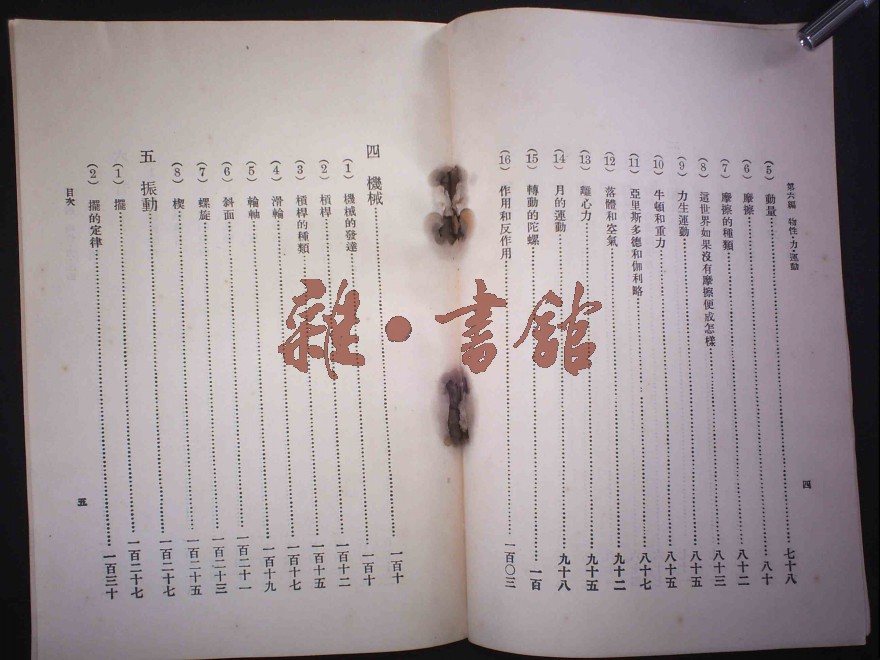 第六編 物性・力・運動
(5) 動量 七十八
(6) 摩擦 八十
(7) 摩擦的種類 八十二
(8) 這世界如果沒有摩擦便成怎樣 八十三
(9) 力生運動 八十五
(10) 牛頓和重力 八十五
(11) 亞里斯多德和伽利略 八十七
(12) 落體和空氣 九十二
(13) 離心力 九十五
(14) 月的運動 九十八
(15) 轉動的陀螺 一百
(16) 作用和反作用 一百〇三
四
四 機械 一百十
(1) 機械的發達 一百十
(2) 槓桿 一百十二
(3) 槓桿的種類 一百十五
(4) 滑輪 一百十七
(5) 輪軸 一百十九
(6) 斜面 一百二十一
(7) 螺旋 一百二十三
(8) 楔 一百二十五
五 振動 一百二十七
(1) 擺 一百二十七
(2) 擺的定律 一百三十
目次
五
雜・書館